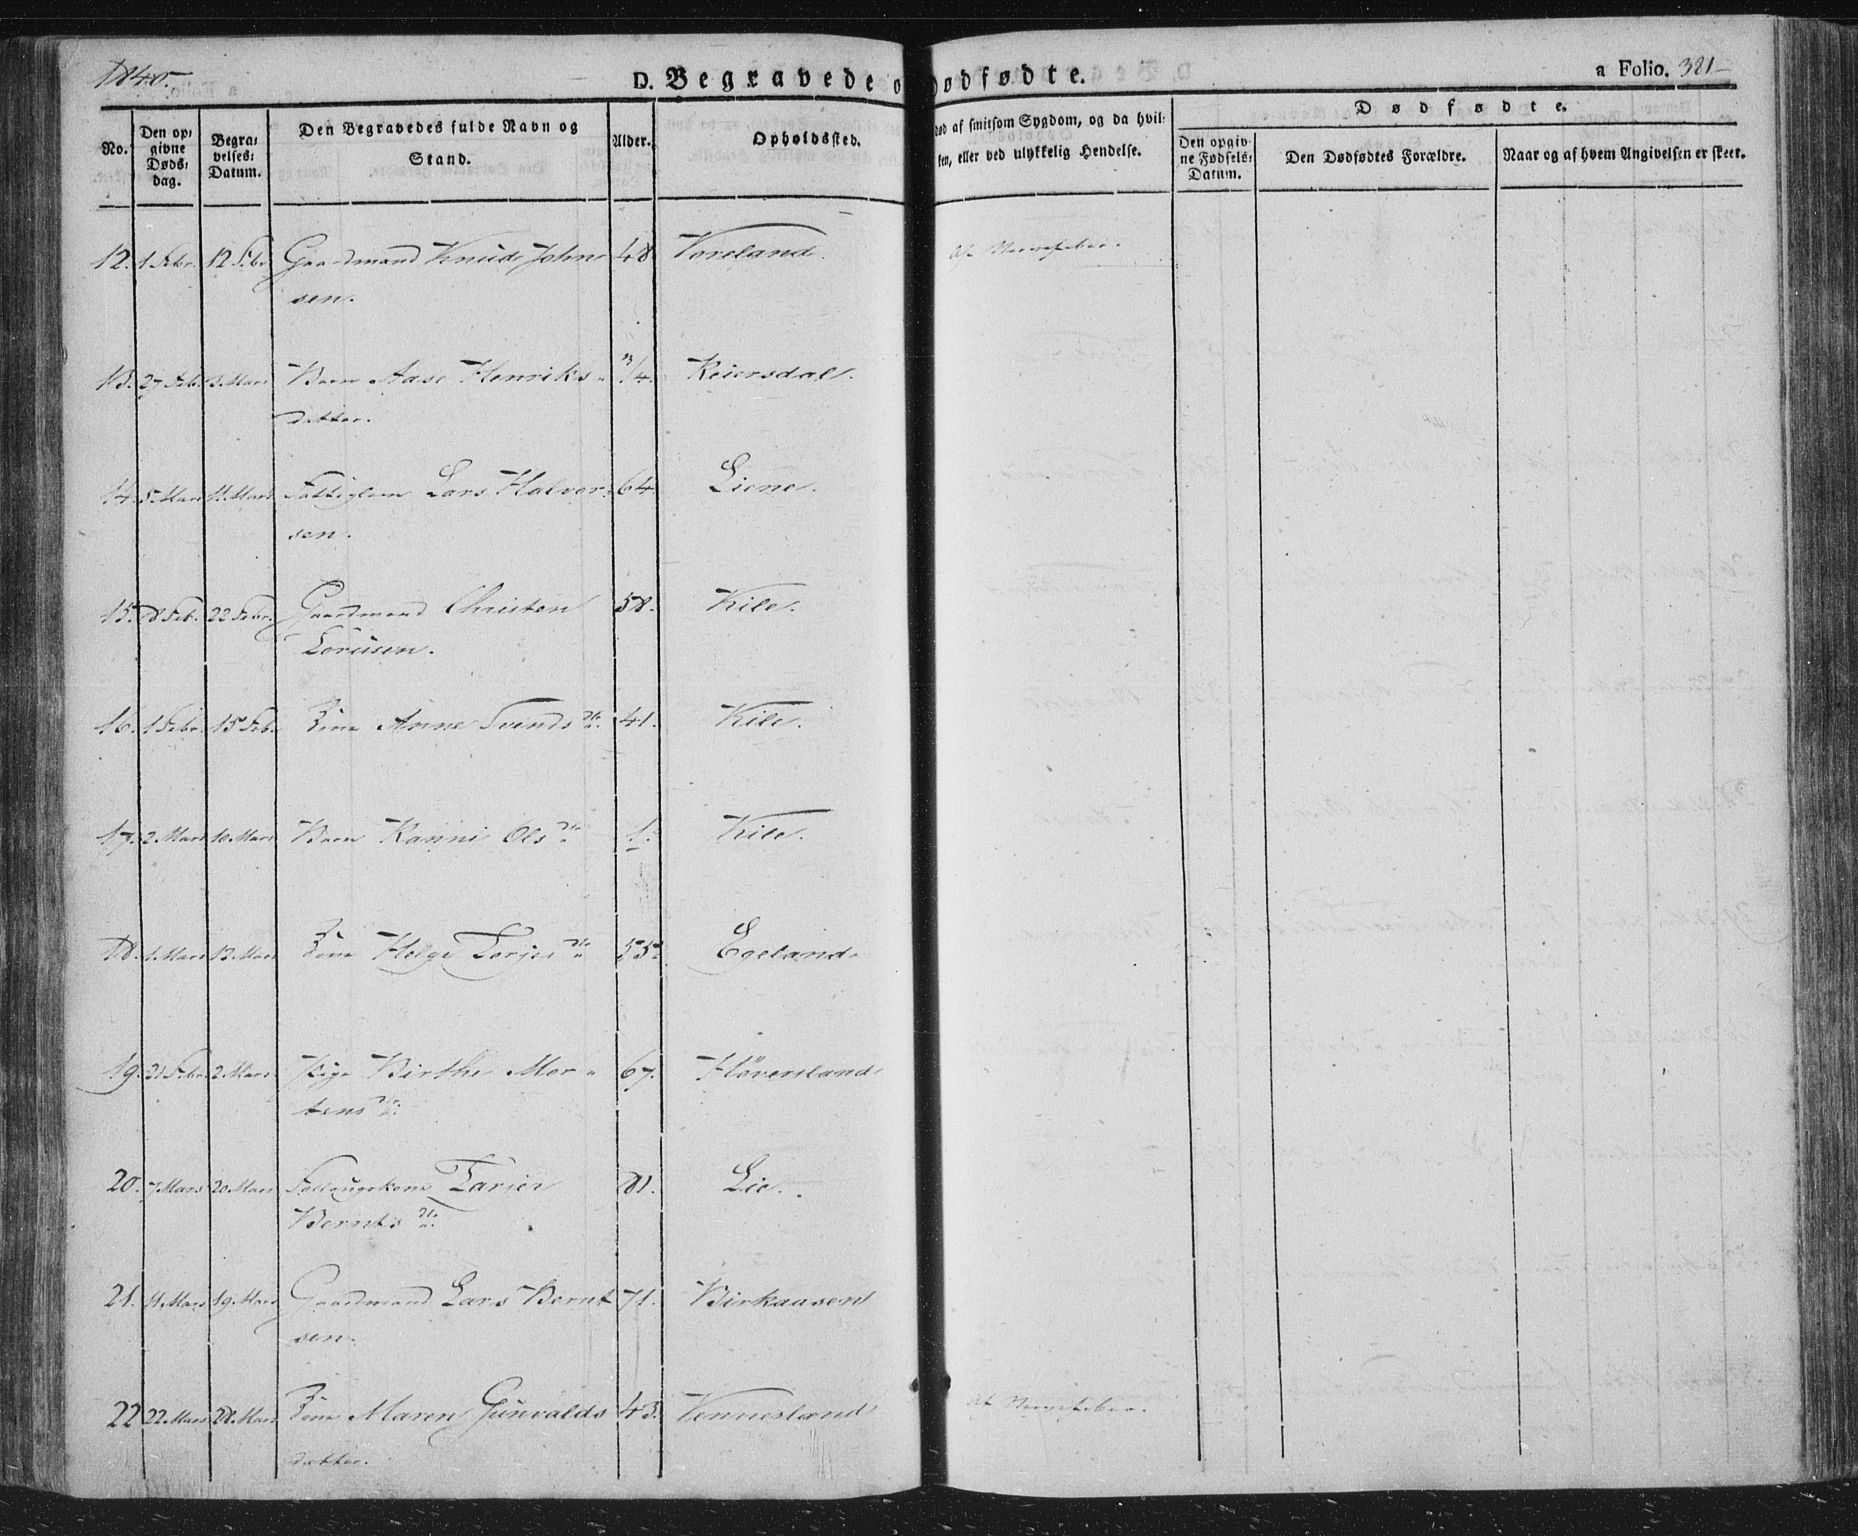 1840.
D. Begravede o Dødfødte.
a Folio. 381
No.
Den op-
givne
Døds-
dag.
Begra-
velses-
Datum.
Den Begravedes fulde Navn og
Stand.
Alder.
Opholdssted.
Død af smitsom Sygdom, og da hvil-
ken, eller ved ulykkelig Hendelse.
Dødfødte.
Den opgiv-
ne Fødsels-
Datum.
Den Dødfødtes Forældre.
Naar og af hvem Angivelsen er skeet.
12. 1 Febr. 12 Febr. Gaardmand Knud John 48. Voreland. Af Nervefeber.
sen.
13. 27 Feb. 3. Mars Barn Aase Henriks- 3/4. Keiersdal.
datter.
14. 5. Mars 11. Mars Fattiglem Lars Halvor- 64 Liene.
sen.
15. 18 Feb. 22 Febr. Gaardmand Christen 58. Kile.
16. 1 Febr. 15 Feb. Anne Svends dtr. 41. Kile.
17. 2 Mars 10 Mars Barn Kanni Ols dtr. 1. Kile.
18. 1. Mars 13. Mars Helge Torjes dtr. 55. Egeland.
19. 21 Febr. 2. Mars Pige Birthe Mor- 67. Høversland
tens dtr.
20. 7 Mars 20 Mars Tarjer 81. Lie.
Bernts dtr.
21. 11. Mars 19. Mars Gaardmand Lars Bernt 71. Birkaasen
sen.
22 22 Mars 28. Mars Maren Gunvalds 43. Vennesland Af Nervefeber.
datter.